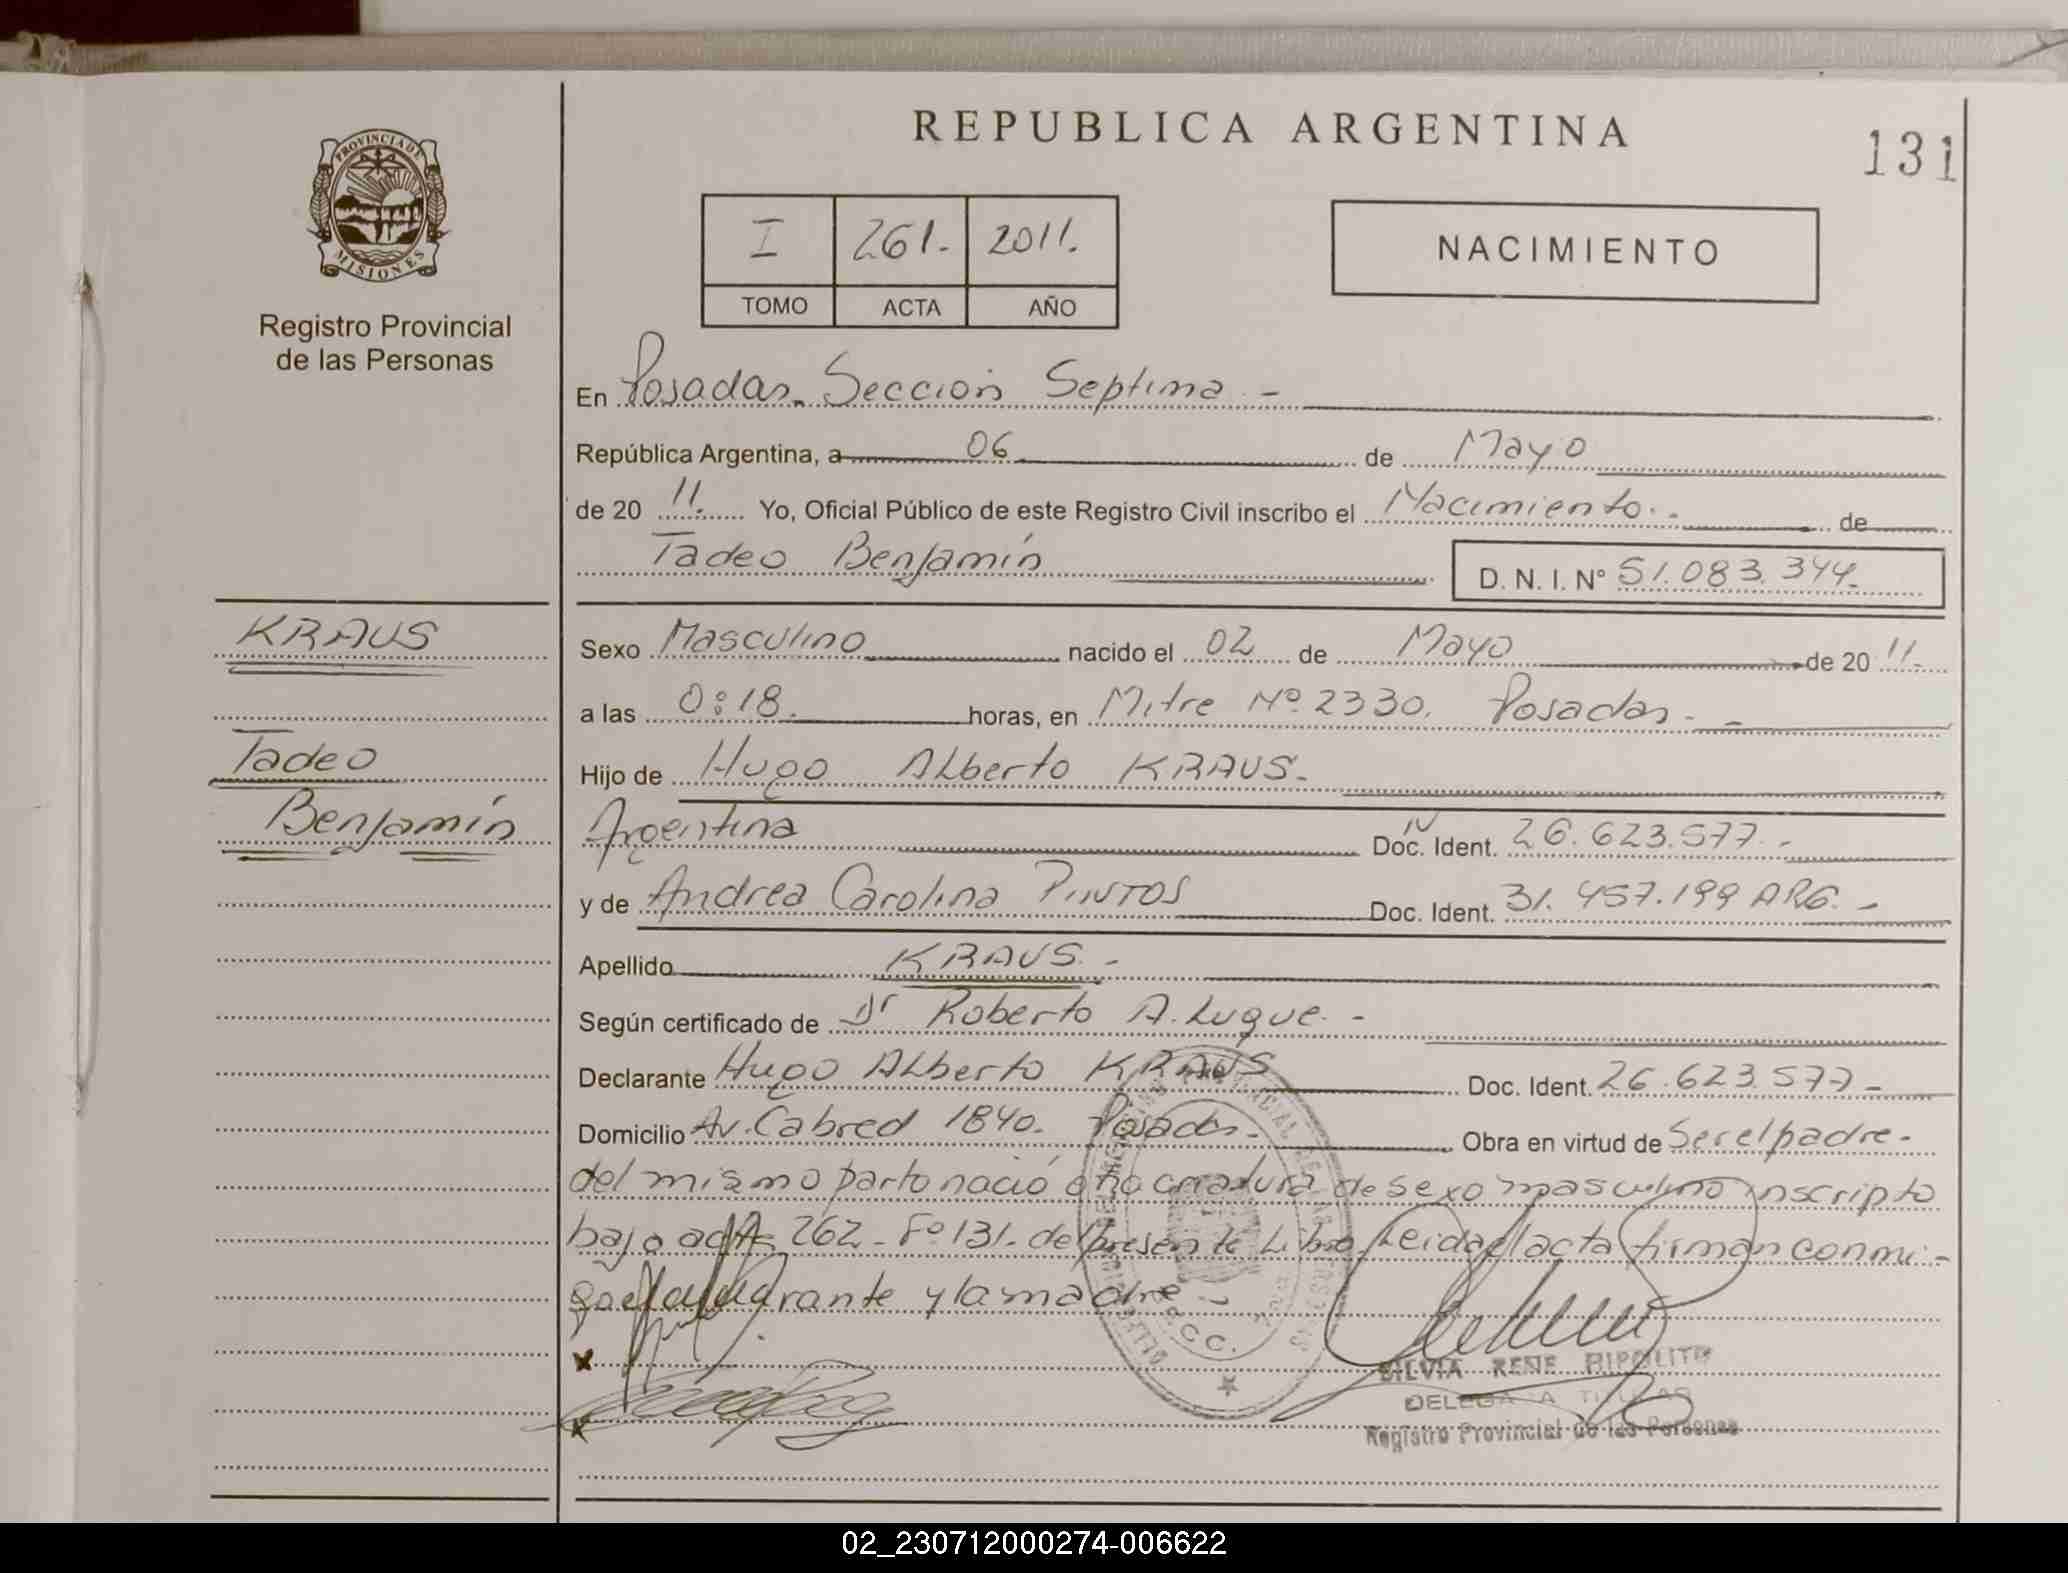 REPUBLICA ARGENTINA
131
PROVINCIA DE
MISIONES
Registro Provincial
de las Personas
I 261. 2011.
TOMO ACTA AÑO
NACIMIENTO
En Posadas. Sección Septima -
República Argentina, a 06 de Mayo
de 20 11. Yo, Oficial Público de este Registro Civil inscribo el Nacimiento. de
Tadeo Benjamín D. N. I. Nº 51.083.344.
KRAUS
Tadeo
Benjamín
Sexo Masculino nacido el 02 de Mayo de 20 11.
a las 0:18. horas, en Mitre Nº 2330. Posadas. -
Hijo de Hugo Alberto KRAUS.
Argentina Doc. Ident. 26.623.577. -
y de Andrea Carolina PINTOS Doc. Ident. 31.457.199 ARG. -
Apellido KRAUS. -
Según certificado de Dr Roberto A. Luque. -
Declarante Hugo Alberto KRAUS Doc. Ident. 26.623.577 -
Domicilio Av. Cabred 1840. Posadas. Obra en virtud de Ser el padre.
del mismo parto nació otra criatura de sexo masculino inscripto
bajo acta 262 - Fº 131. del presente Libro. Leida el acta firman conmi-
go el declarante y la madre
x
x
SILVIA RENE HIPOLITO
DELEGADA TITULAR
Registro Provincial de las Personas
02_230712000274-006622